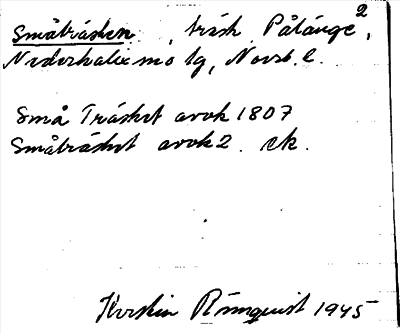 Småträsken, träsk Pålänge 2,
Nederkalix sn o tg, Norrb. l.
Små Träsket avok 1807
Småträsket avok 2. ek.
Kerstin Rönnquist 1945